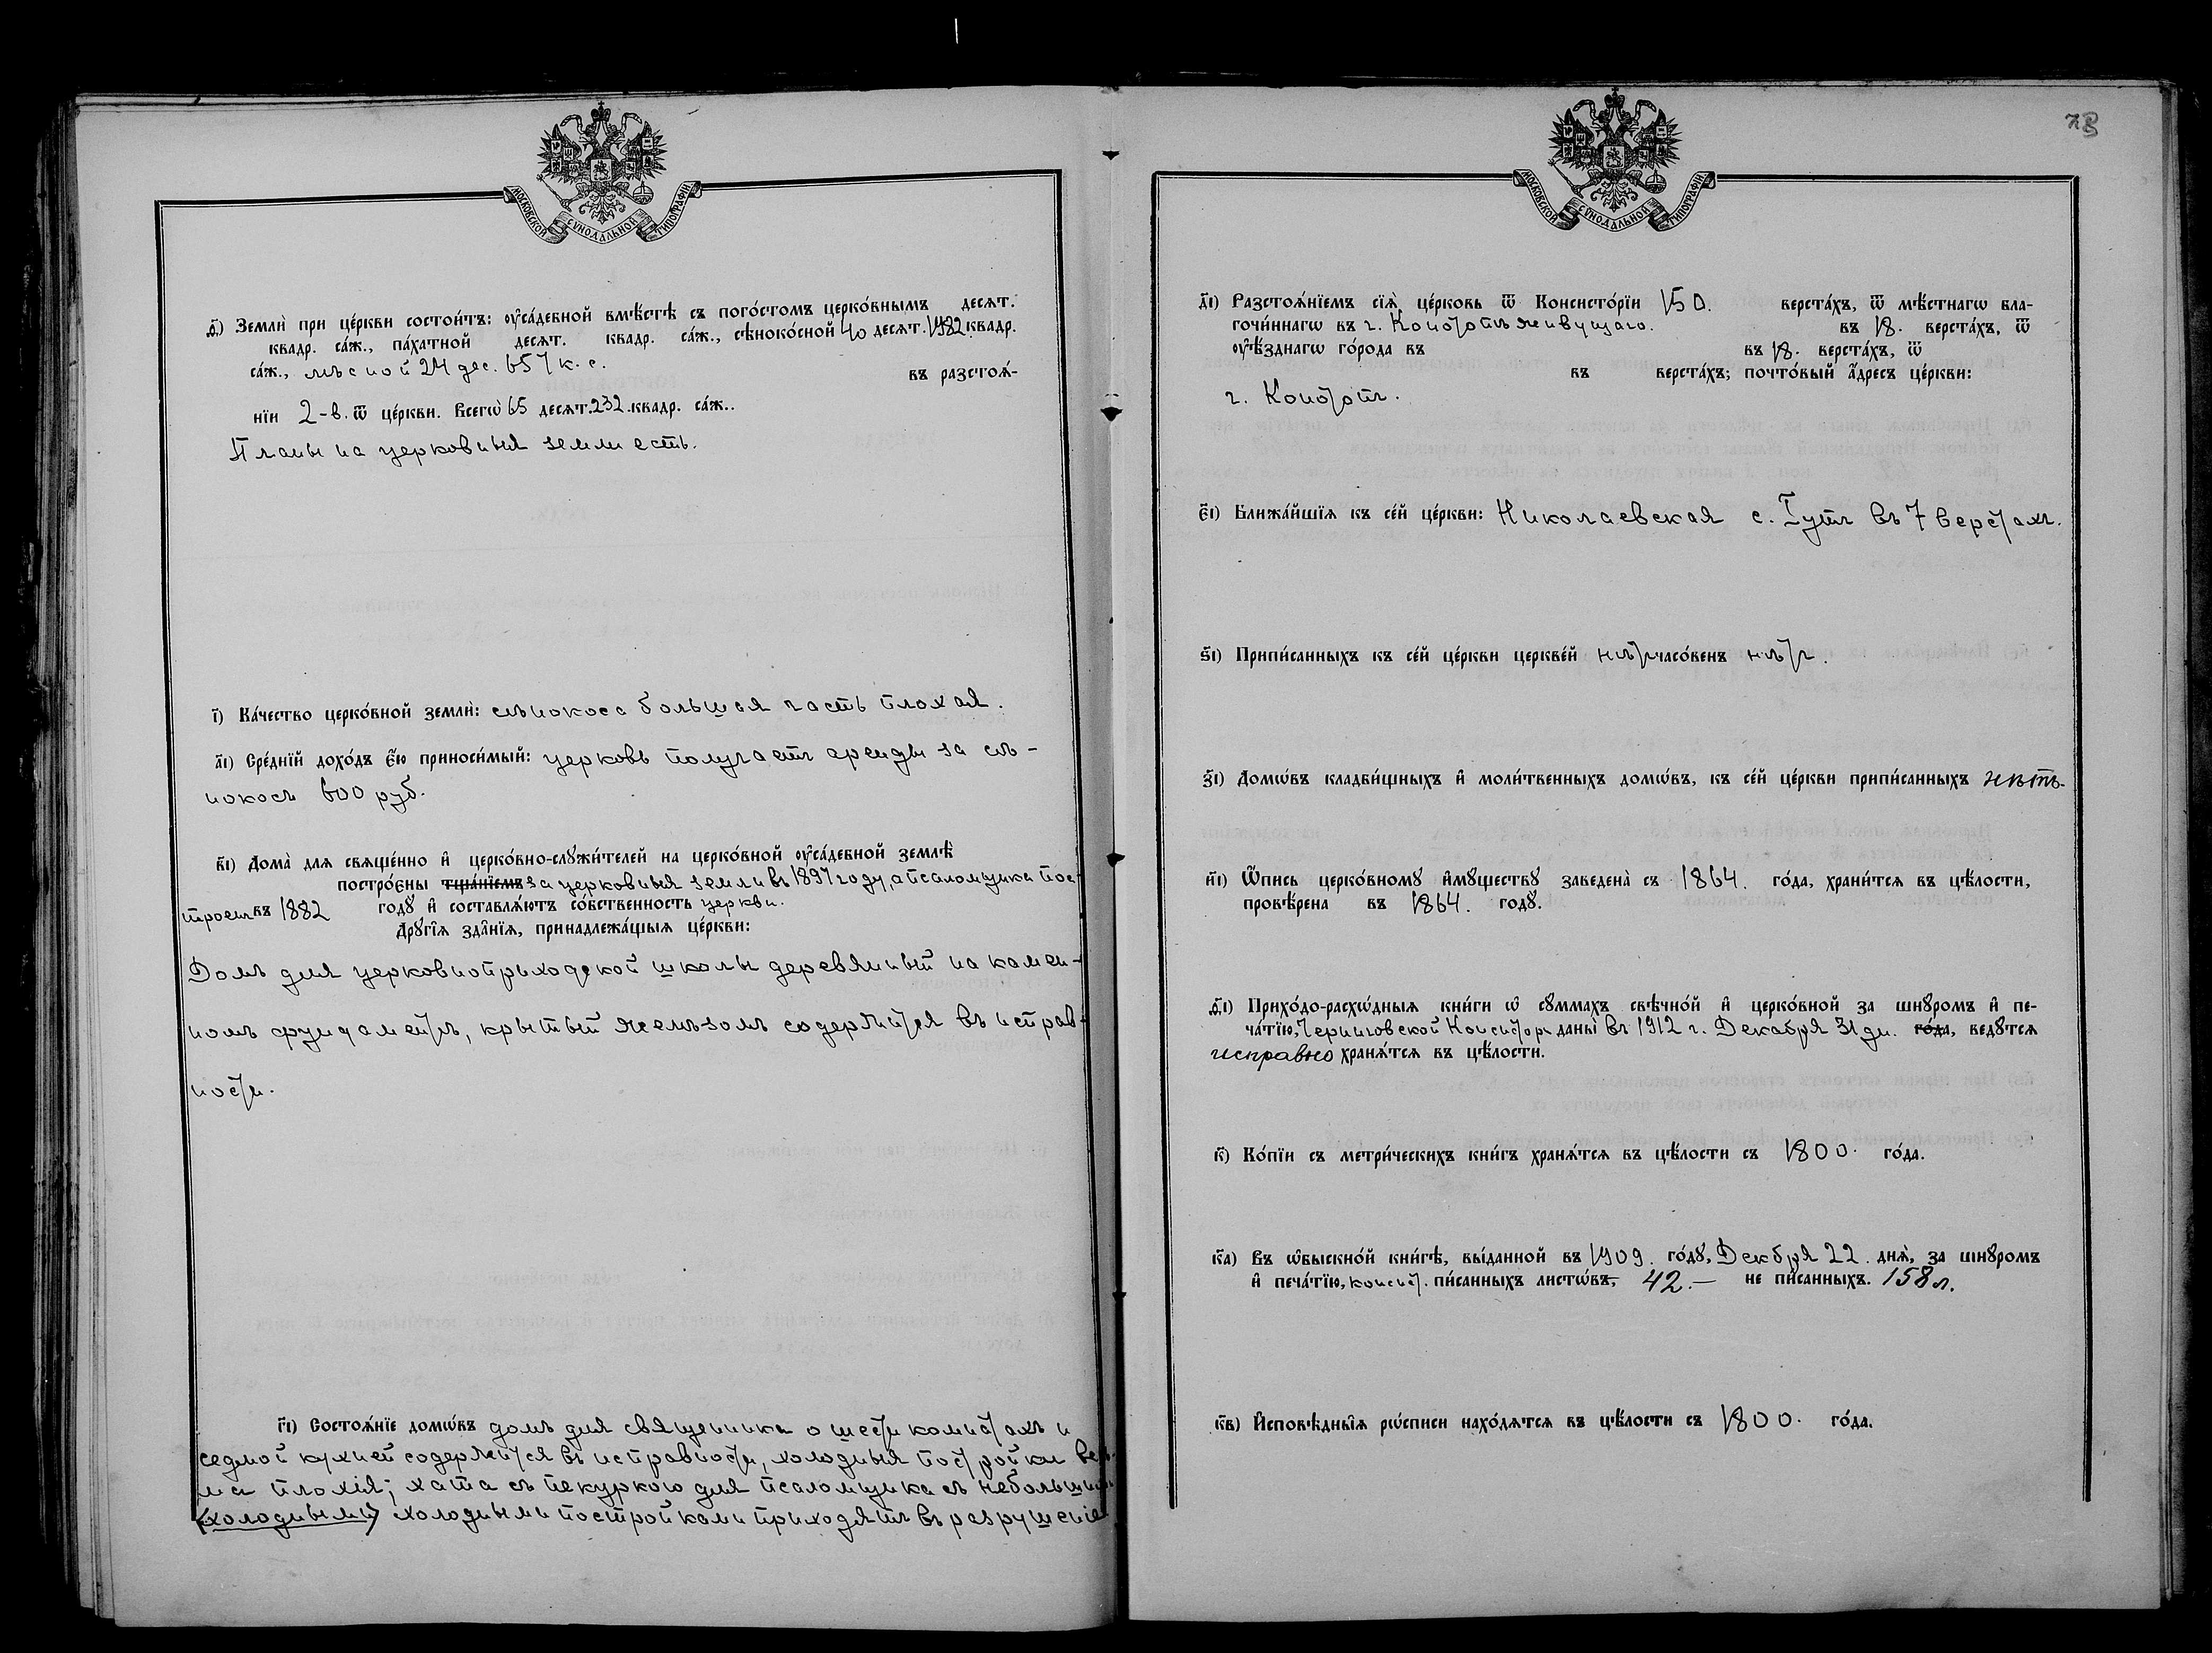 МОСКОВСКОЙ СѴНОДАЛЬНОЙ ТИПОГРАФІИ
ѳ҃) Землѝ при це́ркви состои́тъ: ᲂу҆са́дебной вмѣ́стѣ съ пого́стомъ церко́внымъ десѧт.
квадр. са́ж., па́хатной десѧт. квадр. са́ж., сѣноко́сной 40 десѧт. 1982 квадр.
са́ж., лѣсной 24 дес. 657 к. с. въ разстоѧ́-
нїи 2-в. ѿ це́ркви. Всегѡ̀ 65 десѧт. 232 квадр. са́ж..
Планы на церковныя земли есть.
і҃) Ка́чество церко́вной землѝ: сѣнокоса большая часть плохая.
а҃і) Сре́днїй дохо́дъ є҆́ю приноси́мый: церковь получаетъ аренды за сѣ-
нокосъ 600 руб.
в҃і) Дома̀ для свѧще́нно и҆ церко́вно-слꙋжи́телей на церко́вной ᲂу҆са́дебной землѣ̀
постро́єны тща́нїемъ за церковныя земли въ 1897 году, а псаломщика пос-
троенъ въ 1882 годꙋ̀ и҆ составлѧ́ютъ со́бственность церкви.
Дрꙋгі́ѧ зда̑нїѧ, принадлежа́щыѧ це́ркви:
Домъ для церковноприходской школы деревянный на камен-
номъ фундаментѣ, крытый желѣзомъ содержится въ исправ-
ности.
г҃і) Состоѧ́нїе домѡ́въ домъ для священника о шести комнатахъ и
седмой кухней содержится въ исправности, холодныя постройки весь-
ма плохія; хата съ пекуркою для псаломщика съ небольшими
(холодными) холодными постройками приходятъ въ разрушеніе
МОСКОВСКОЙ СѴНОДАЛЬНОЙ ТИПОГРАФІИ
д҃і) Разстоѧ́нїемъ сїѧ̀ це́рковь ѿ Консисто́рїи 150. верста́хъ, ѿ мѣ́стнагѡ бла-
гочи́ннагѡ въ г. Конотопѣ живущаго. въ 18. верста́хъ, ѿ
ᲂу҆ѣ́зднагѡ го́рода въ въ 18. верста́хъ, ѿ
въ верста́хъ; почто́вый а҆́дресъ це́ркви:
г. Конотопъ.
є҃і) Ближа́йшїѧ къ се́й це́ркви: Николаевская с. Гутъ въ 7 верстахъ.
ѕ҃і) Припи́санныхъ къ се́й це́ркви церкве́й нѣтъ часо́венъ нѣтъ.
з҃і) Домѡ́въ кладби́щныхъ и҆ моли́твенныхъ домѡ́въ, къ се́й це́ркви припи́санныхъ нѣтъ.
и҃і) Ѡ҆́пись церко́вномꙋ и҆мꙋ́ществꙋ заведена̀ съ 1864. го́да, храни́тсѧ въ цѣ́лости,
провѣ́рена въ 1864. годꙋ̀.
ѳ҃і) Прихо́до-расхѡ́дныѧ кни́ги ѡ҆ сꙋ́ммахъ свѣчно́й и҆ церко́вной за шнꙋ́ромъ и҆ пе-
ча́тїю, Черниговской Консистор. даны̀ въ 1912 г. Декабря 31 дн. го́да, ведꙋ́тсѧ
исправно хранѧ́тсѧ въ цѣ́лости.
к҃) Ко́пїи съ метри́ческихъ кни́гъ хранѧ́тсѧ въ цѣ́лости съ 1800. го́да.
к҃а) Въ ѡ҆быскно́й кни́гѣ, вы́данной въ 1909. го́дꙋ, Декбря 22. днѧ̀, за шнꙋ́ромъ
и҆ печа́тїю, консист. пи́санныхъ листѡ́въ, 42.— не пи́санныхъ. 158 л.
к҃в) И҆сповѣ́дныѧ рѡ́списи нахо́дѧтсѧ въ цѣ́лости съ 1800. го́да.